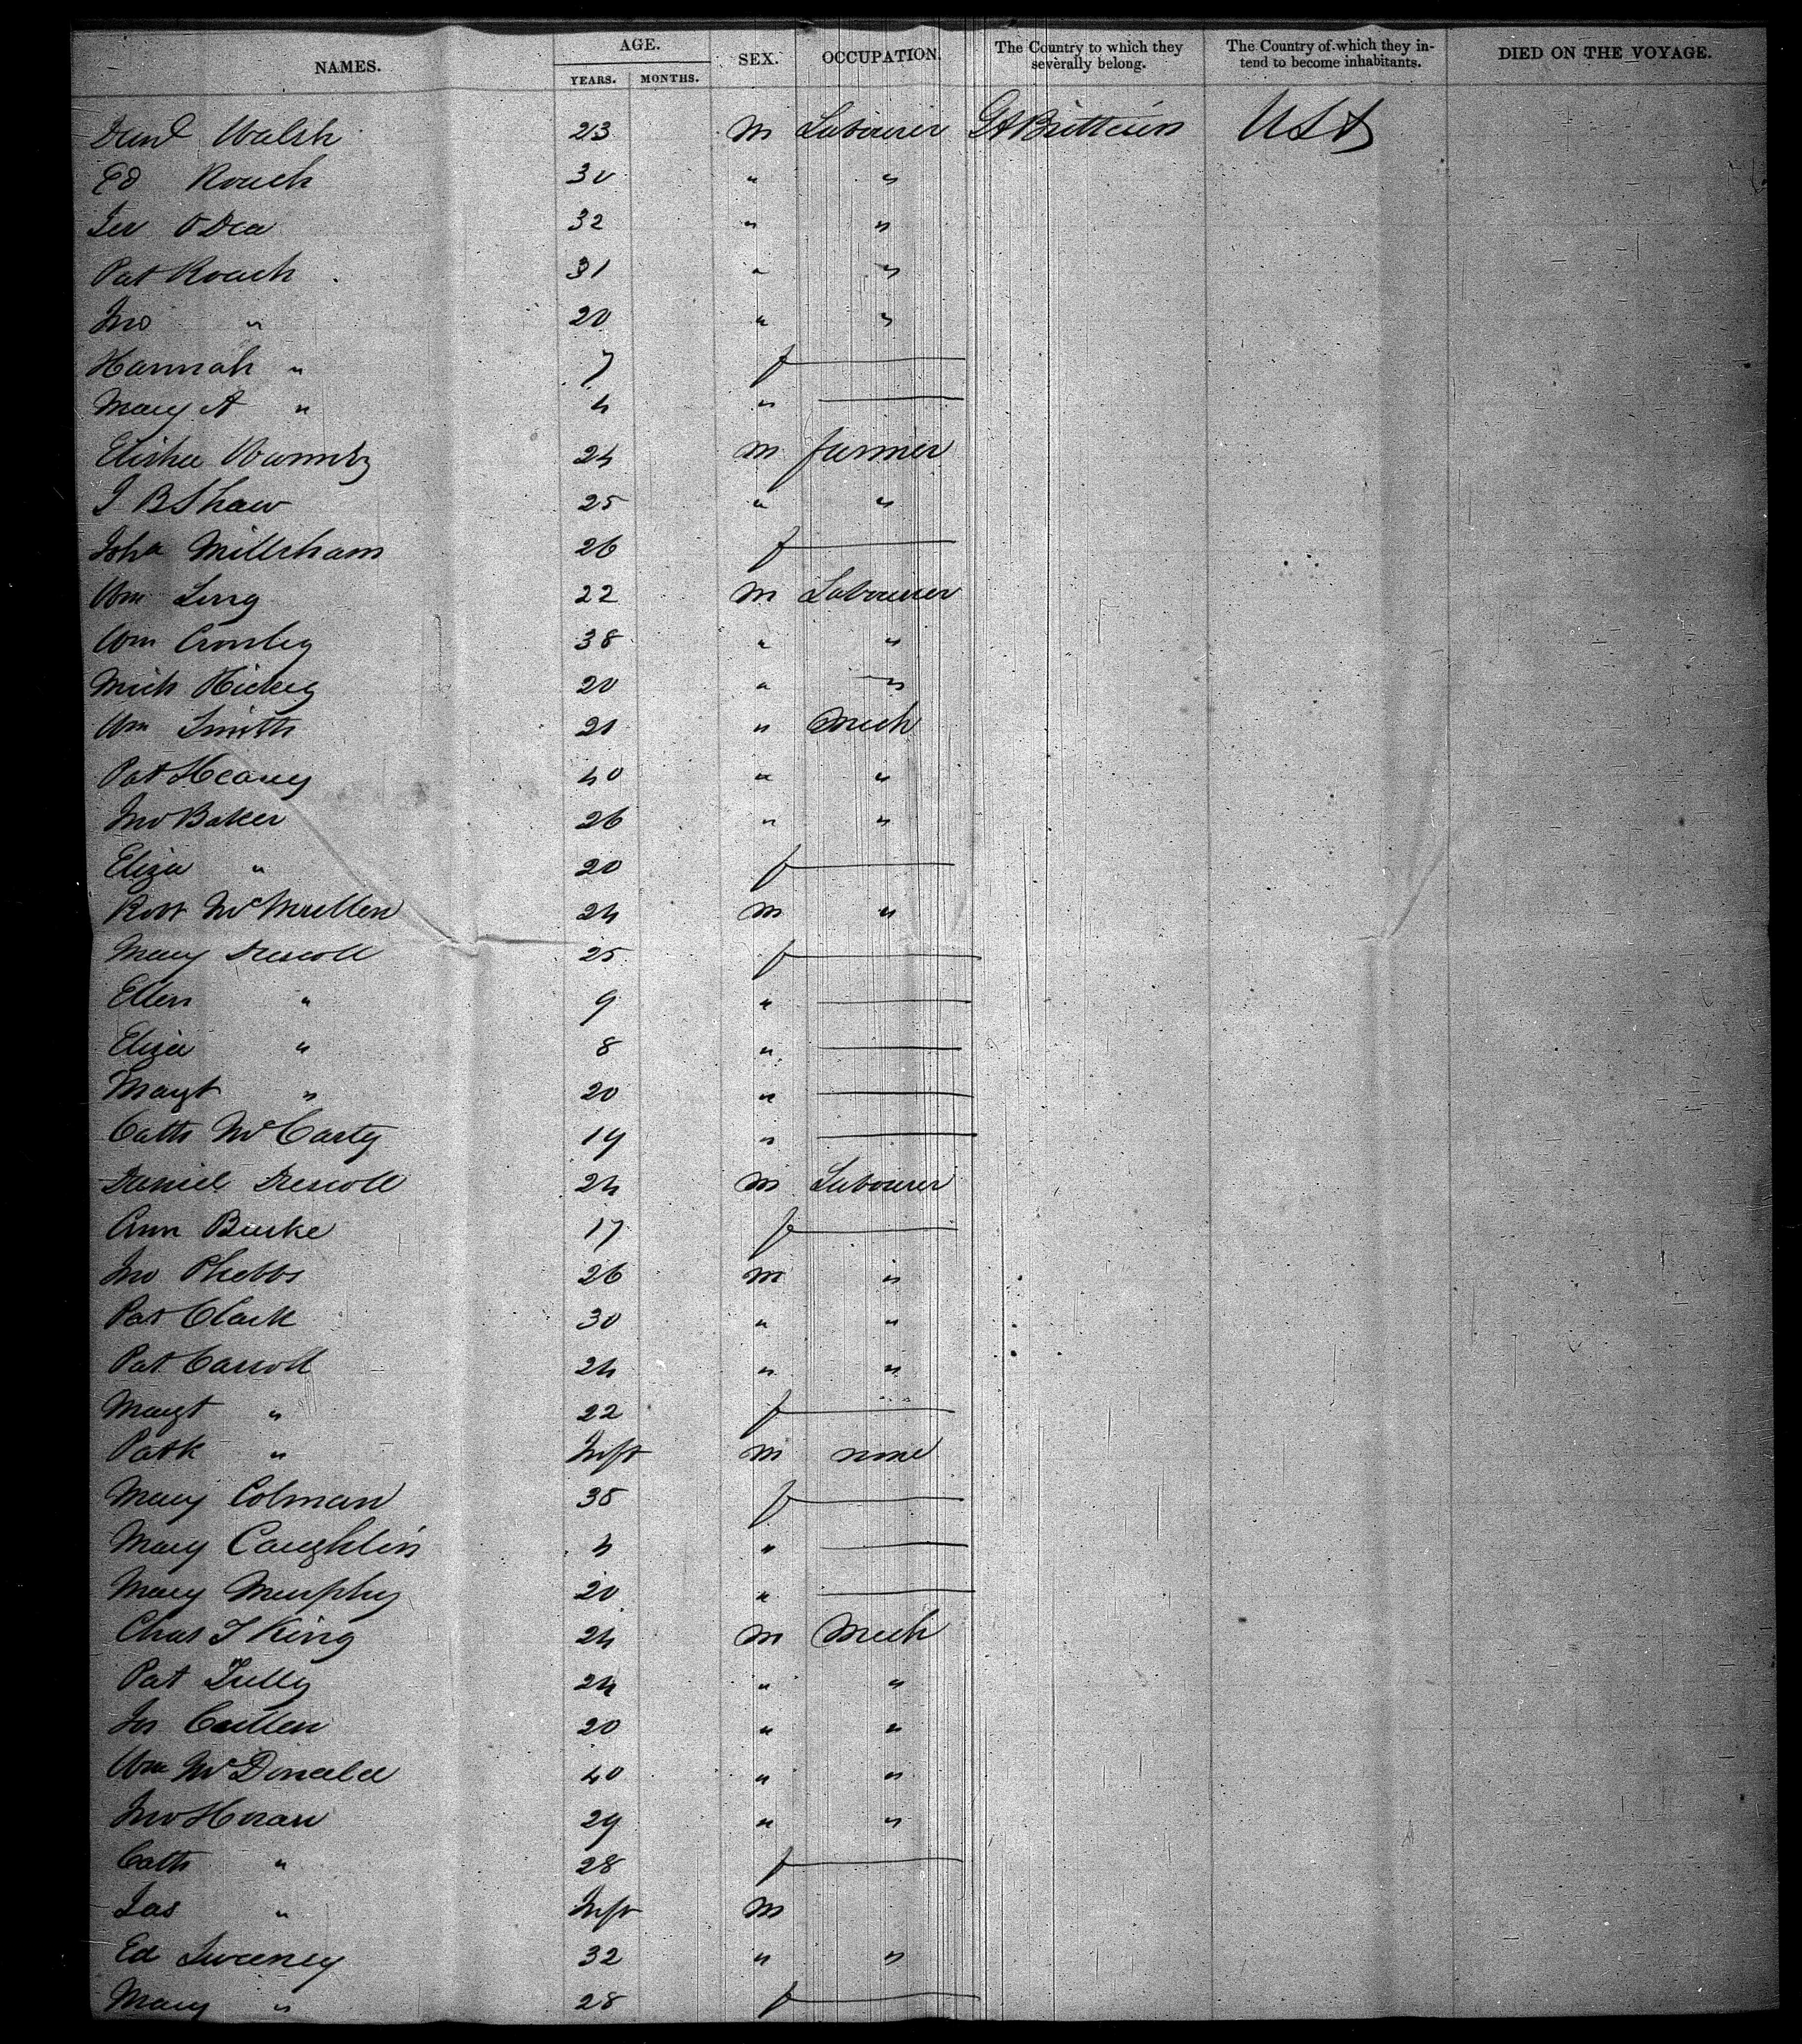 NAMES. AGE. SEX. OCCUPATION. The Country to which they severally belong. The Country of which they intend to become inhabitants. DIED ON THE VOYAGE.
YEARS. MONTHS.
Danl Walsh 23 m Labourer Gt Brittain USA
Ed Roach 30 " "
Jer O Dea 32 " "
Pat Roach 31 " "
Jno " 20 " "
Hannah " 7 f
Mary A " 4 "
Elisha 24 m farmer
J B Shaw 25 " "
Millicham 26 f
Wm Ling 22 m Labourer
Wm Crosley 38 " "
Mich Hickey 20 " "
Wm Smith 21 " Mech
Pat Heaney 40 " "
Jno Baker 26 " "
Eliza " 20 f
Robt McMullen 24 m "
Mary Drescoll 25 f
Ellen " 9 "
Eliza " 8 "
Margt " 20 "
Cath McCarty 19 "
Daniel Drescoll 24 m Labourer
Ann Burke 17 f
Jno Phebbs 26 m "
Pat Clark 30 " "
Pat Carroll 24 " "
Margt " 22 f
Patk " Inft m none
Mary Colman 35 f
Mary Caughlin 4 "
Mary Murphy 20 "
Chas T King 24 m Mech
Pat Tully 24 " "
Cullen 20 " "
Wm McDonald 40 " "
Jno Horan 29 " "
Cath " 28 f
Jas " Inft m
Ed Sweeney 32 " "
Mary " 28 f